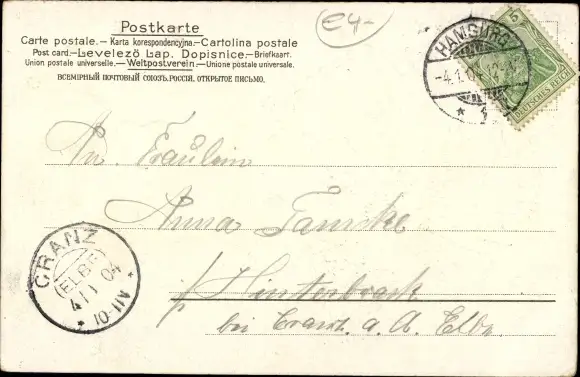 Postkarte
Carte postale. — Karta korespondencyjna. — Cartolina postale
Post card. — Levelező Lap. Dopisnice. — Briefkaart.
Union postale universelle. — Weltpostverein — Unione postale universale.
ВСЕМІРНЫЙ ПОЧТОВЫЙ СОЮЗЪ. РОССІЯ. ОТКРЫТОЕ ПИСЬМО.
€4-
HAMBURG
-4.1.04
* 1
5
DEUTSCHES REICH
An Fräulein
Anna
CRANZ
(ELBE)
4/1 04
* 10-11V *
p/ Hinterbrack
bei Cranz a. d. Elbe